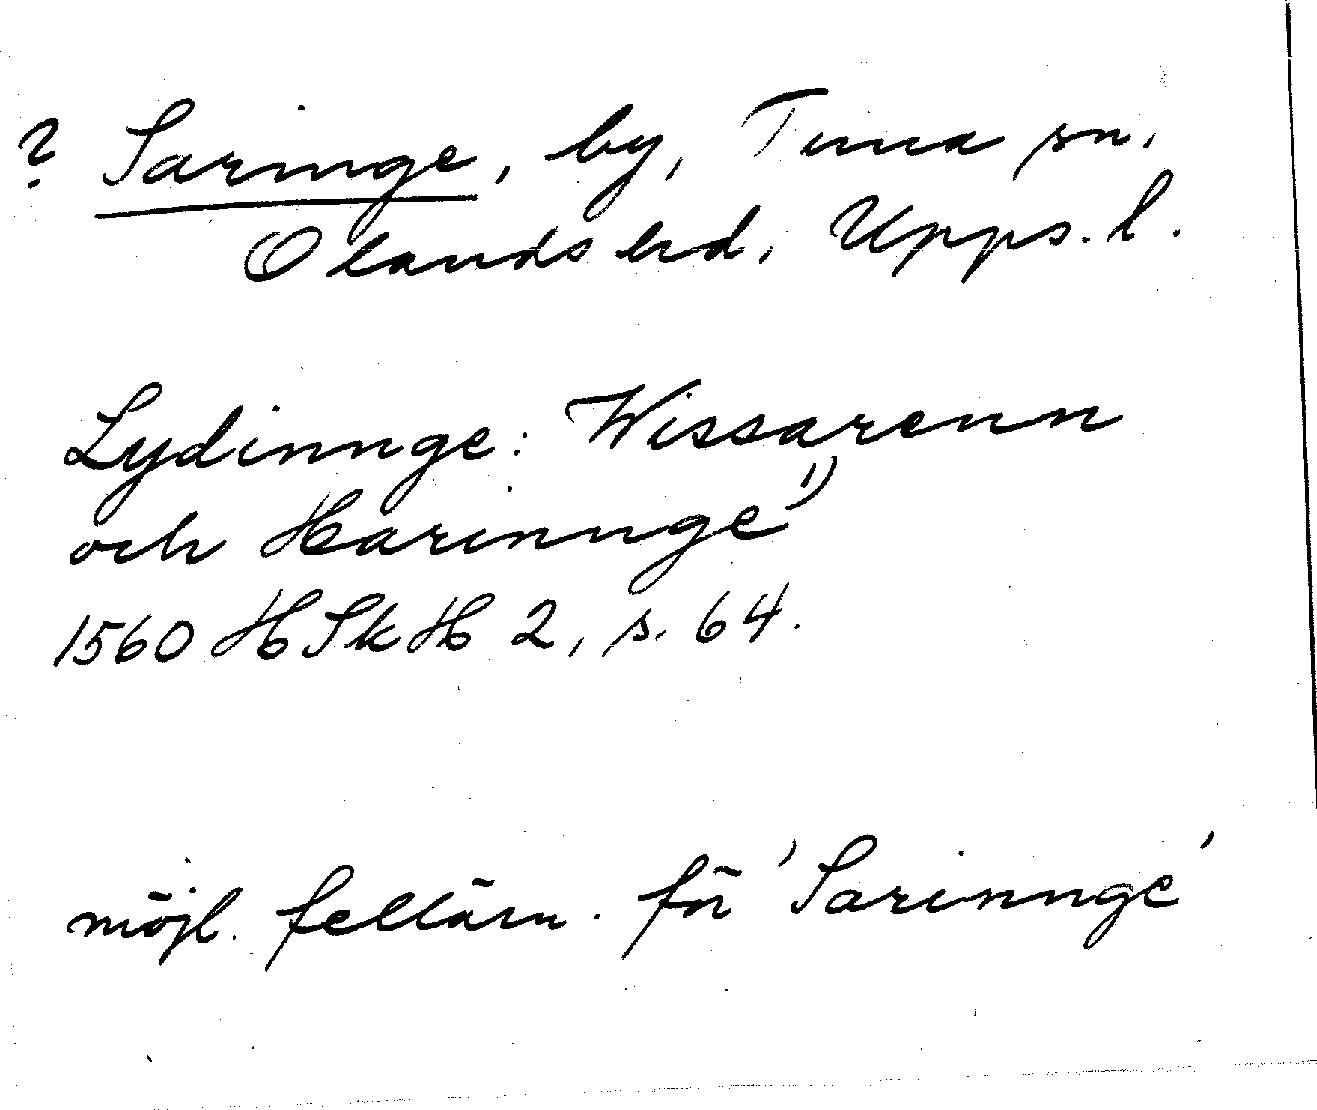 ? Saringe, by, Tuna sn.
Olands hd. Upps. l.
Lydinnge: Wissarenn
och Harinnge¹)
1560 HSkH 2, s. 64.
möjl. felläsn. för 'Sarinnge'